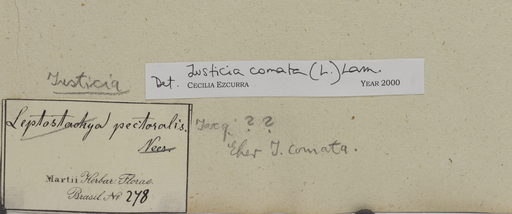 Det. Justicia comata (L.) Lam.
CECILIA EZCURRA YEAR 2000
Justicia
Leptostachya pectoralis.
Nees
Jacq ? ?
Eher J. comata.
Martii Herbar. Florae
Brasil No 278